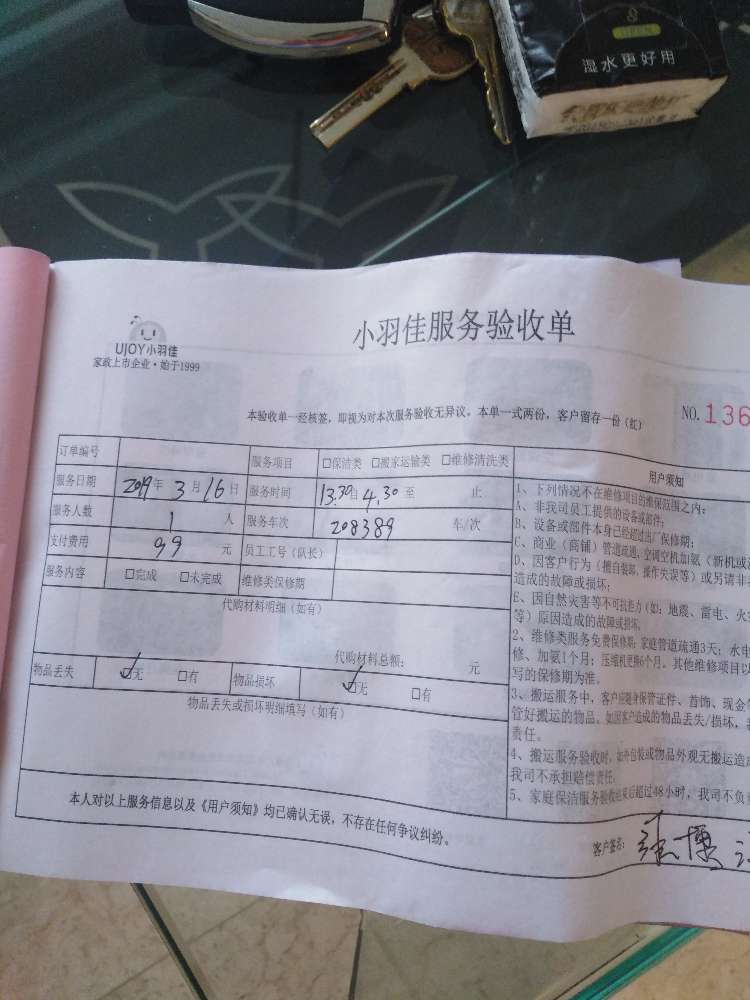 湿水更好用
小羽佳服务验收单
UJOY小羽佳
家政上市企业·始于1999
本验收单一经核签，即视为对本次服务验收无异议，本单一式两份，客户留存一份（红）
NO.136
订单编号 服务项目 □保洁类 □搬家运输类 □维修清洗类
服务日期 2019年 3月 16日 服务时间 13.30自 4.30至 止
服务人数 1 人 服务车次 208389 车/次
支付费用 99 元 员工工号（队长）
服务内容 □完成 □未完成 维修类保修期
代购材料明细（如有）
代购材料总额： 元
物品丢失 ☑无 □有 物品损坏 ☑无 □有
物品丢失或损坏明细填写（如有）
本人对以上服务信息以及《用户须知》均已确认无误，不存在任何争议纠纷。
用户须知
1、下列情况不在维修项目的维保范围之内：
A、非我司员工提供的设备或部件；
B、设备或部件本身已经超过出厂保修期；
C、商业（商铺）管道疏通，空调空机加氨（新机或
D、因客户行为（擅自装卸、操作失误等）或另请非
造成的故障或损坏；
E、因自然灾害等不可抗压力（如：地震、雷电、火
等）原因造成的故障或损坏。
2、维修类服务免费保修期：家庭管道疏通3天；水电
修、加氨1个月；压缩机更换6个月。其他维修项目以
写的保修期为准。
3、搬运服务中，客户应随身保管证件、首饰、现金
管好搬运的物品。如因客户造成的物品丢失/损坏，
责任。
4、搬运服务验收时，如外包装或物品外观无搬运造
我司不承担赔偿责任。
5、家庭保洁服务验收结束后超过48小时，我司不负
客户签名： 张博